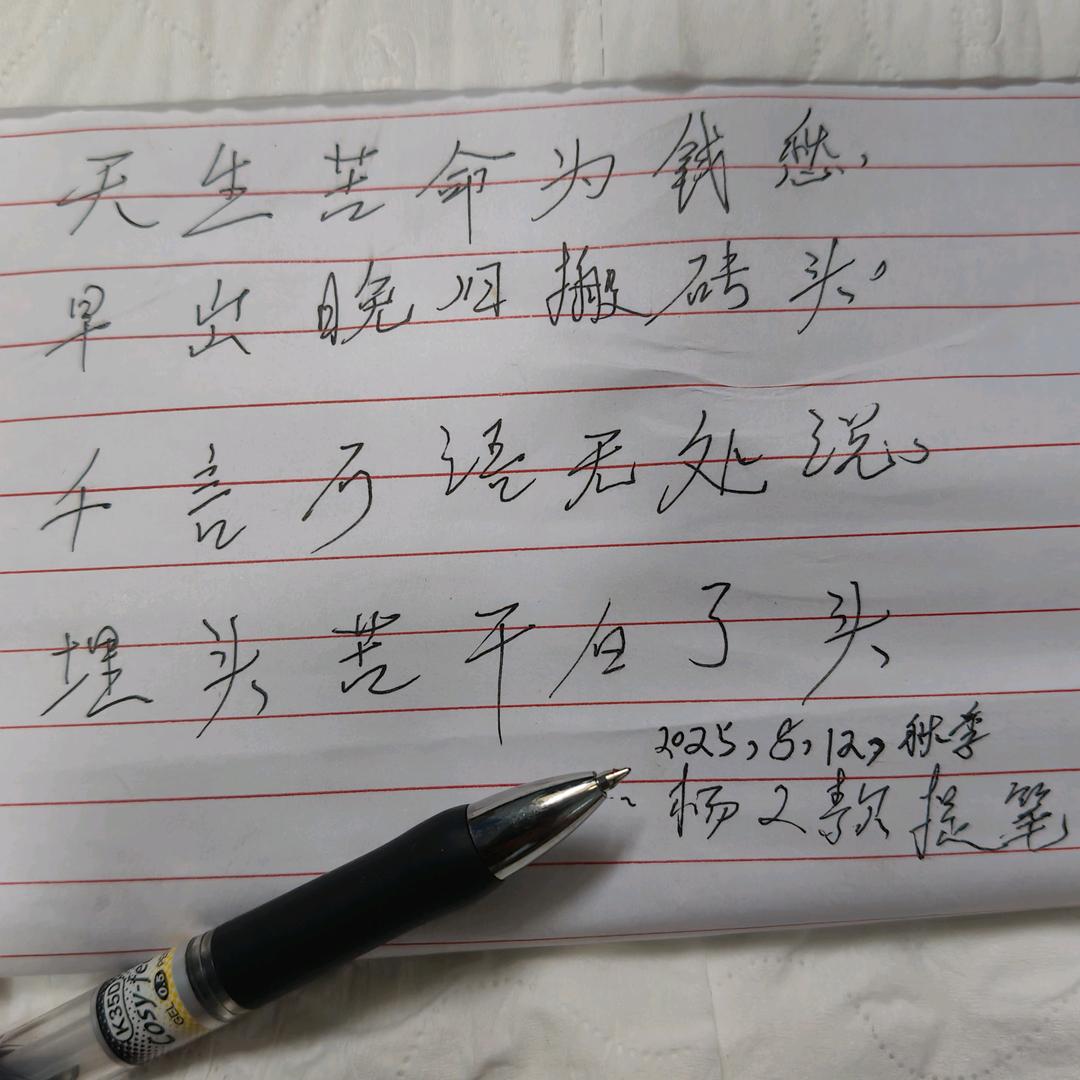 天生苦命为钱愁，
早出晚归搬砖头。
千言万语无处说。
埋头苦干白了头
2025,8,12,秋季
杨又款提笔
K35D
COSY-
GEL 0.5